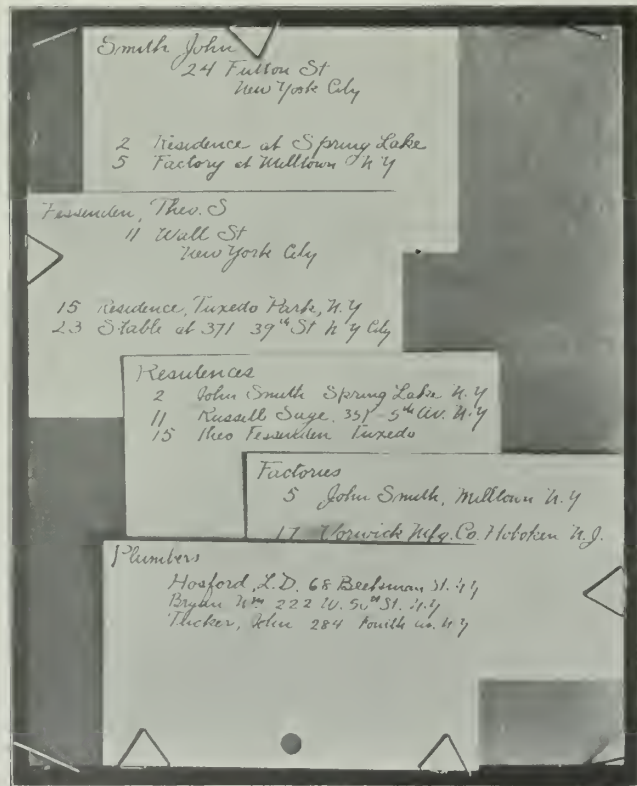 Smith John
24 Fulton St
New York City
2 Residence at Spring Lake
5 Factory at Milltown N Y
Fessenden, Theo. S
11 Wall St
New York City
15 Residence, Tuxedo Park, N.Y
23 Stable at 371 39th St N Y City
Residences
2 John Smith Spring Lake N.Y
11 Russell Sage, 351-5th Av. N.Y
15 Theo Fessenden Tuxedo
Factories
5 John Smith, Milltown N.Y
17 Mfg. Co. Hoboken N.J.
Plumbers
Hosford, L.D. 68 Beekman St. N.Y
Bryan Wm 222 W. 50th St. N.Y
John 284 Fourth av. N.Y